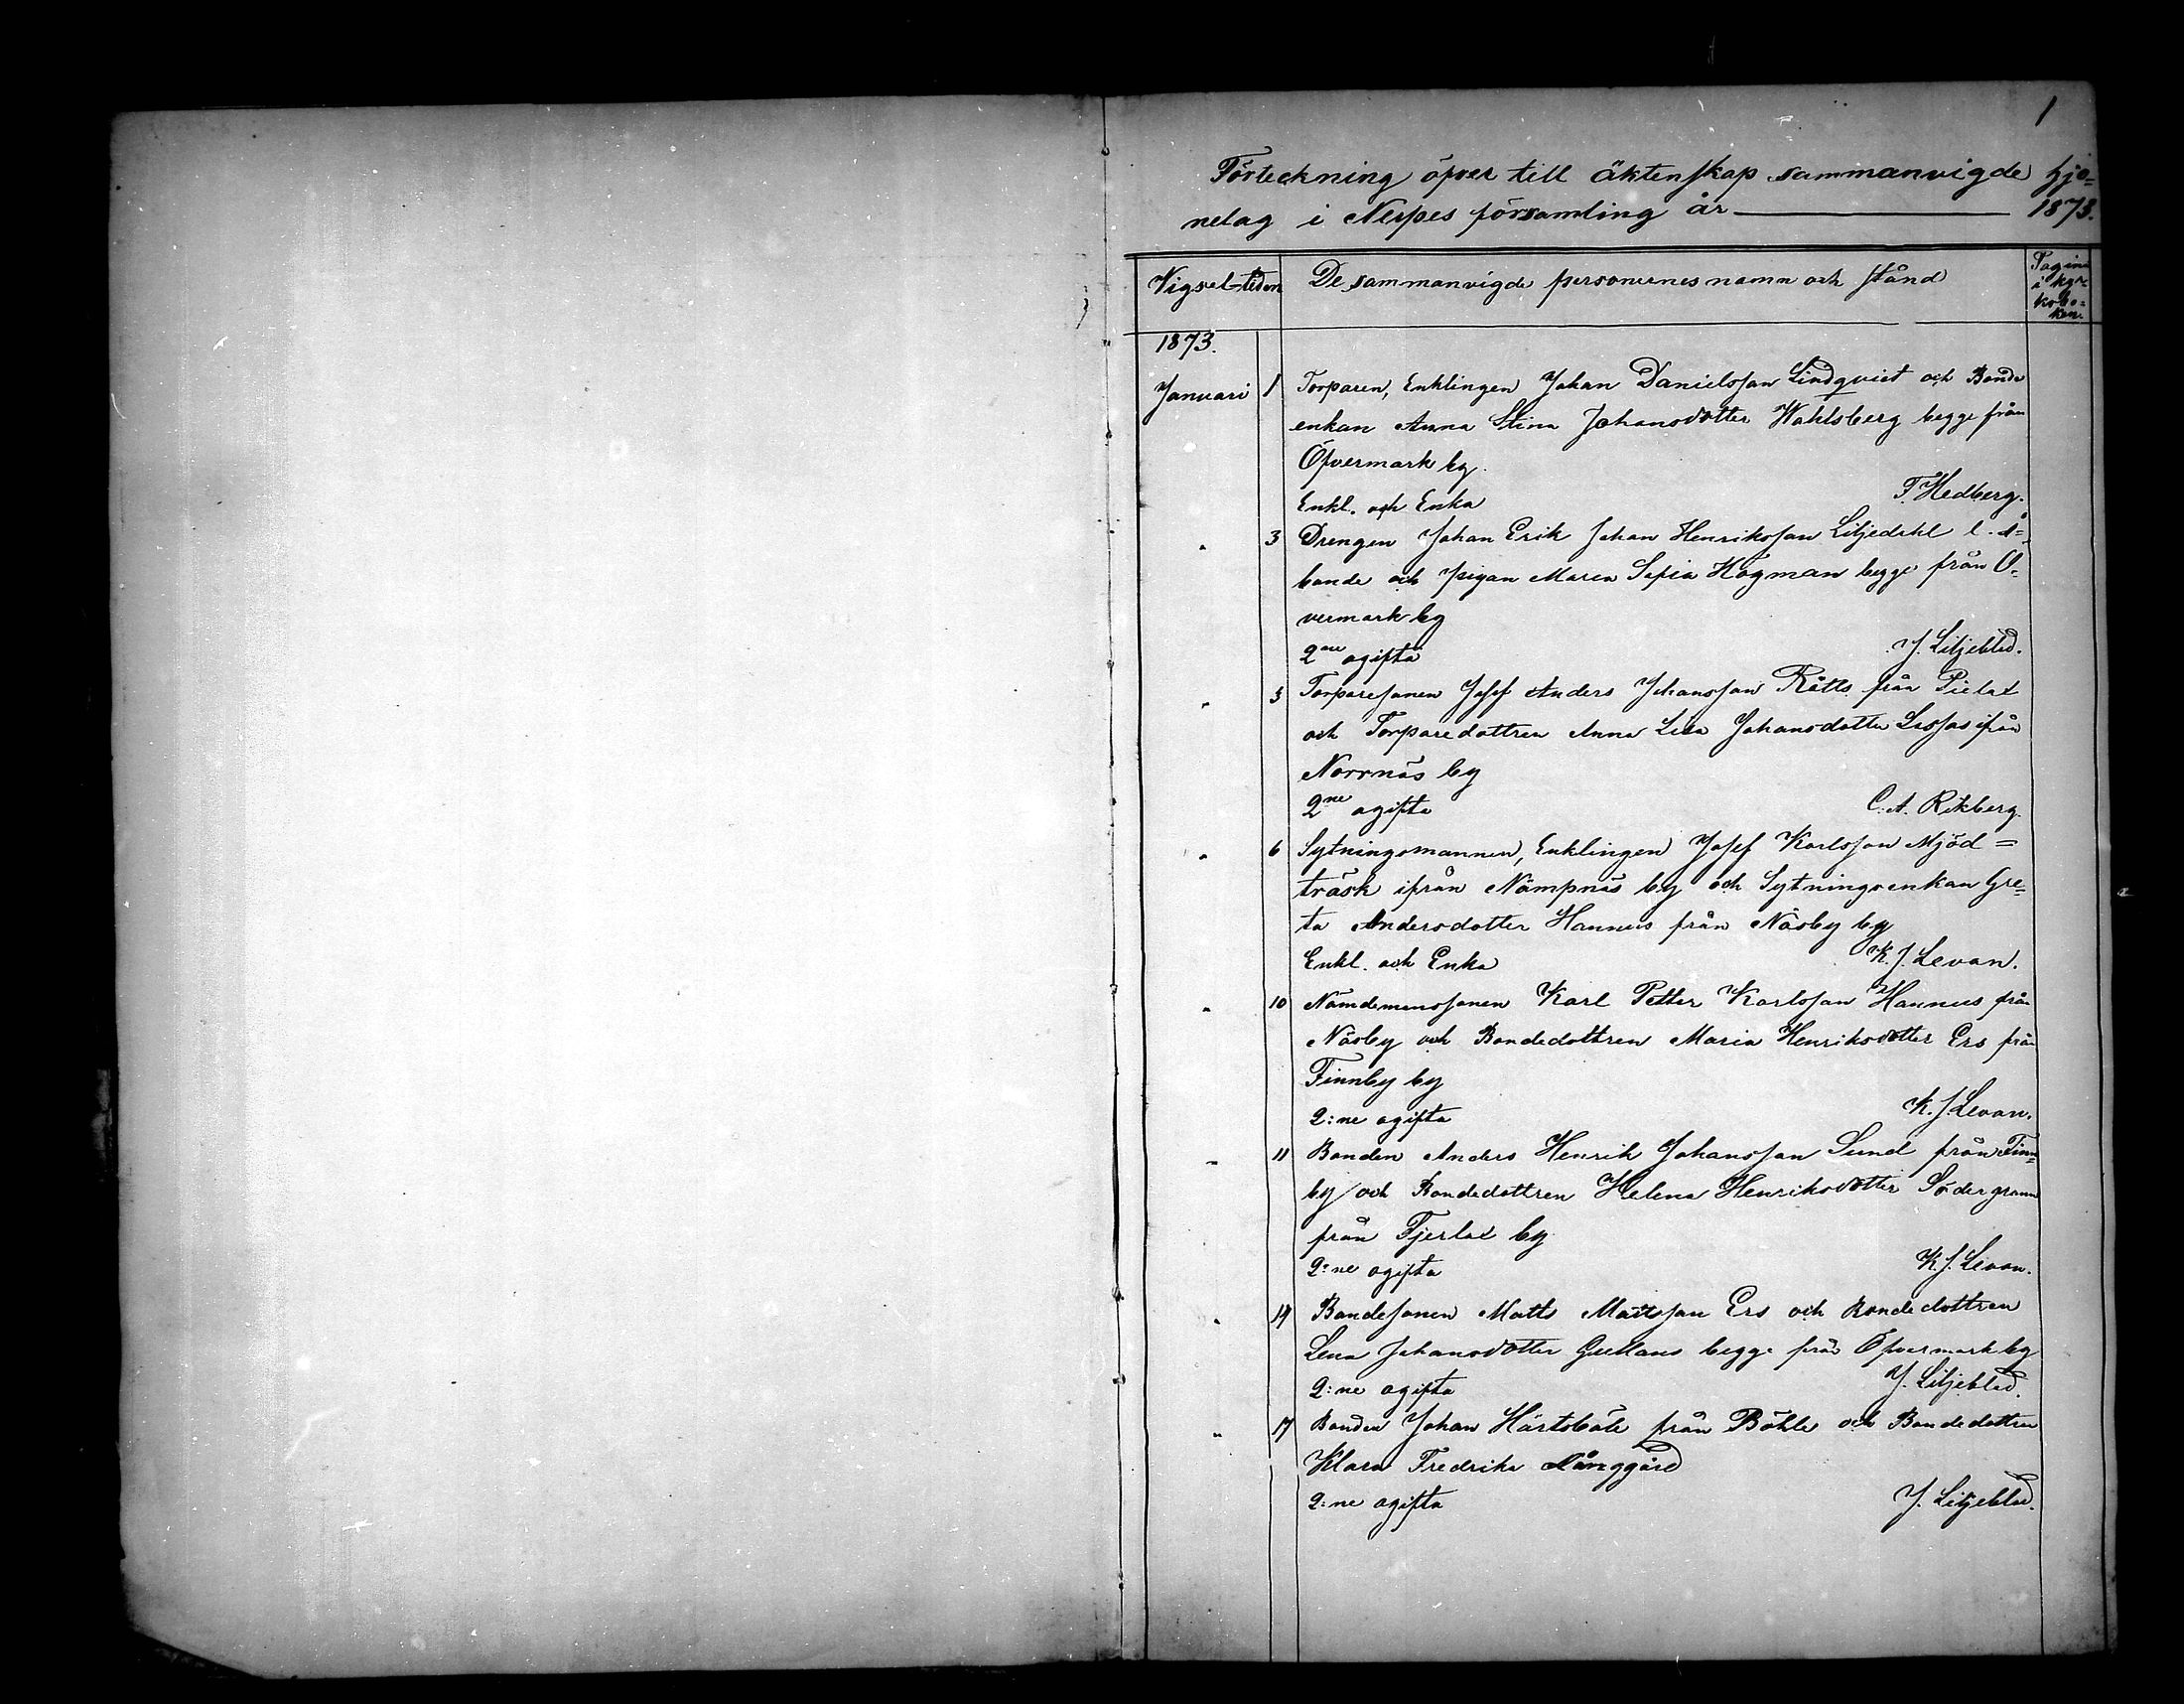 1
Förteckning öfver till äktenskap sammanvigde hjo=
nelag i Nerpes församling år 1873.
Vigsel-tiden De sammanvigde personernes namn och stånd Pagina
i kyr=
kobo=
ken.
1873.
Januari 1 Torparen, Enklingen Johan Danielsson Lindqvist och Bonde
enkan Anna Stina Johansdotter Wahlsberg begge från
Öfvermark by.
Enkl. och Enka T. Hedberg.
" 3 Drengen Johan Erik Johan Henriksson Liljedahl
bonde och pigan Maria Sofia Högman begge från Ö=
vermark by
2ne ogifta J. Liljeblad.
" 3 Torparesonen Josef Anders Johansson Rätts från Pielax
och Torparedottren Anna Lisa Johansdotter Lassas ifrån
Norrnäs by
2ne ogifta C. A. Rikberg.
" 6 Sytningsmannen, Enklingen Josef Karlsson Mjöd=
träsk ifrån Nämpnäs by och Sytningsenkan Gre=
ta Andersdotter Hannus från Näsby by
Enkl. och Enka K. J. Levan.
" 10 Nämdemanssonen Karl Petter Karlsson Hannus från
Näsby och Bondedottren Maria Henriksdotter Ers från
Finnby by
2:ne ogifta K. J. Levan.
" 11 Bonden Anders Henrik Johansson Sund från Finn=
by och Bondedottren Helena Henriksdotter Södergrann
från Tjerlax by
2:ne ogifta K. J. Levan.
" 14 Bondesonen Matts Mattsson Ers och Bondedottren
Lena Johansdotter Gullans begge från Öfvermark by
2:ne ogifta J. Liljeblad.
" 17 Bonden Johan Härtsböle från Böhle och Bondedottren
Klara Fredrika Långgård
2:ne ogifta J. Liljeblad.